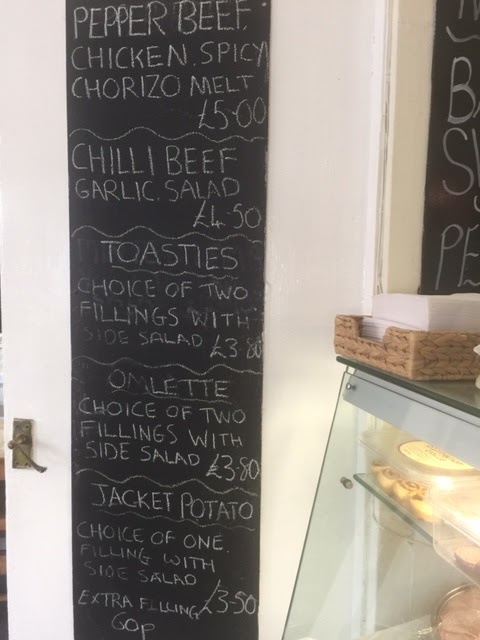 PEPPER BEEF
CHICKEN. SPICY
CHORIZO MELT
£5.00
CHILLI BEEF
GARLIC. SALAD
£4.50
TOASTIES
CHOICE OF TWO
FILLINGS WITH
SIDE SALAD £3.80
OMLETTE
CHOICE OF TWO
FILLINGS WITH
SIDE SALAD £3.80
JACKET POTATO
CHOICE OF ONE.
FILLING WITH
SIDE SALAD
£3.50
EXTRA FILLING
60p